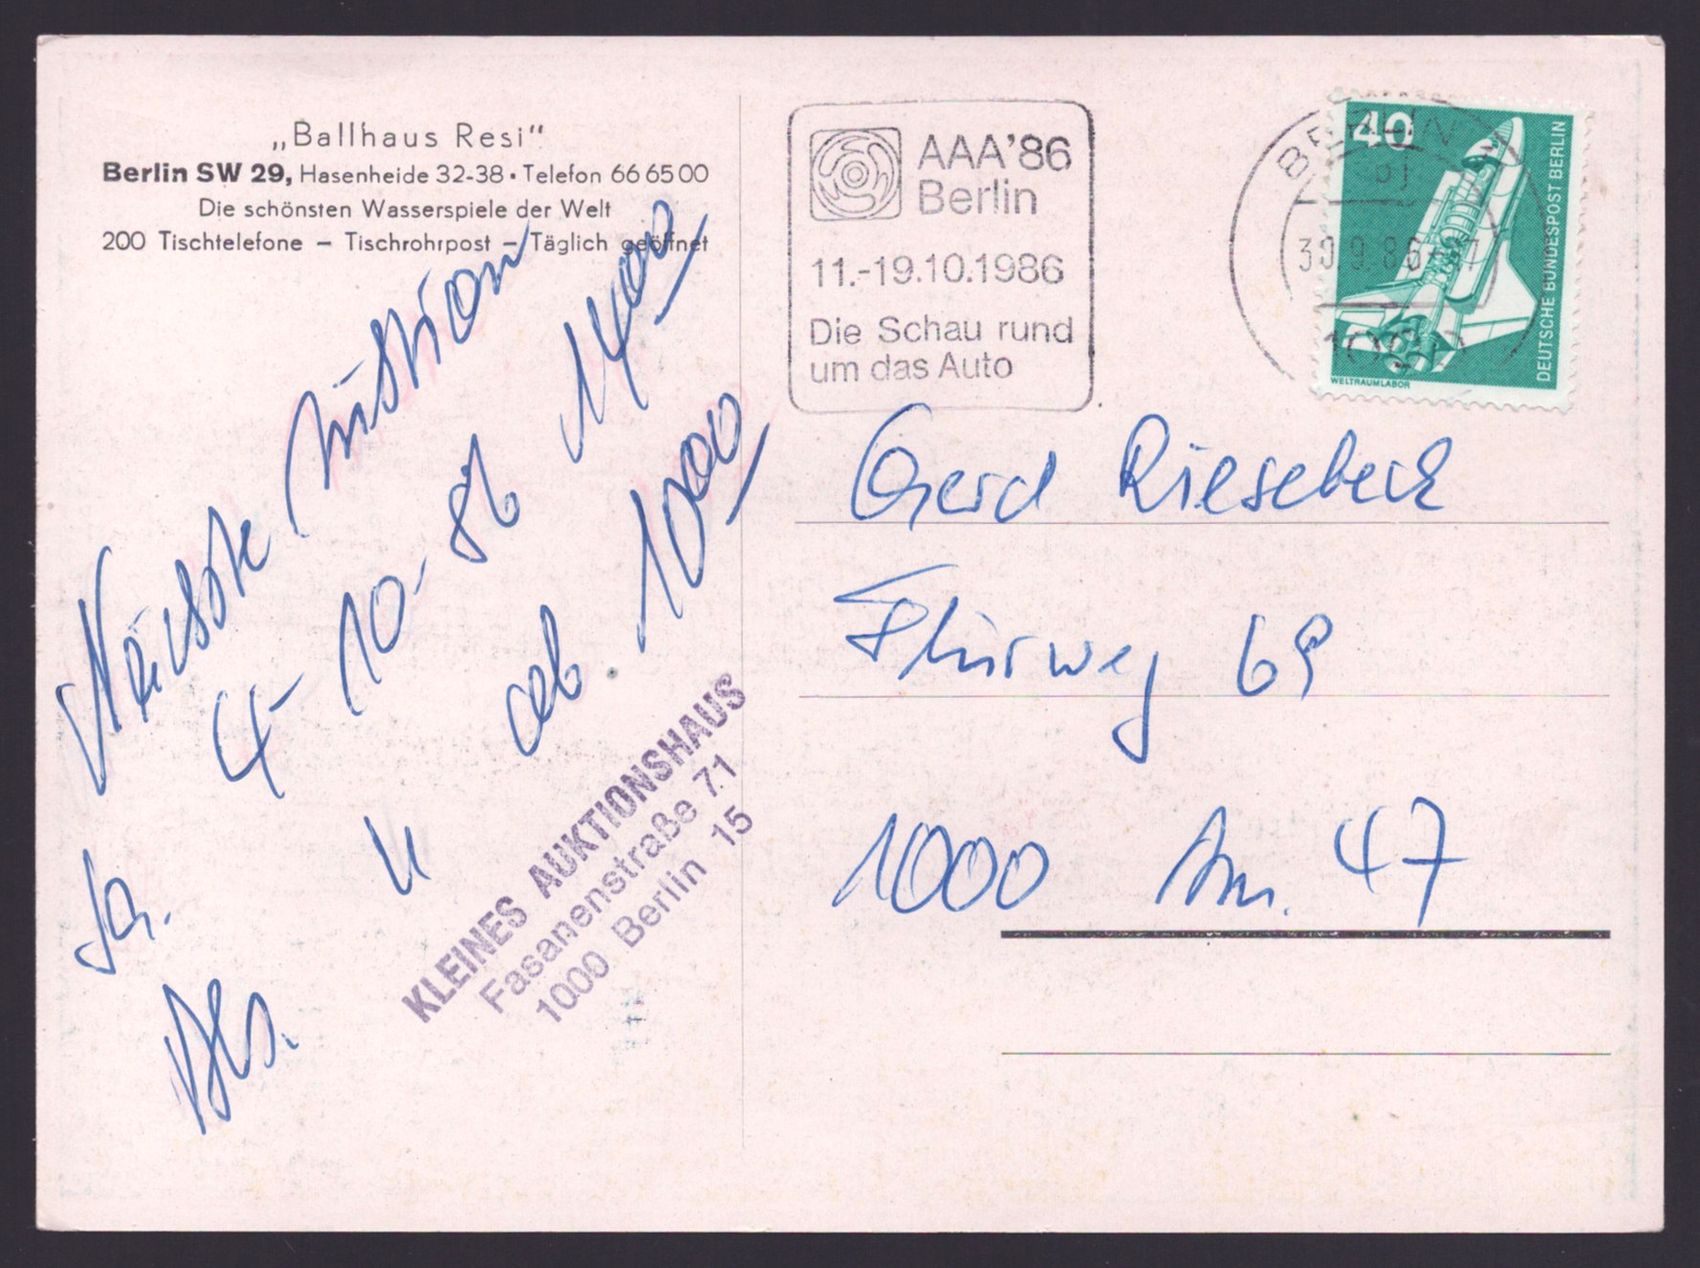 „Ballhaus Resi"
Berlin SW 29, Hasenheide 32-38 • Telefon 66 65 00
Die schönsten Wasserspiele der Welt
200 Tischtelefone – Tischrohrpost – Täglich geöffnet
AAA'86
Berlin
11.-19.10.1986
Die Schau rund
um das Auto
BERLIN
30.9.86
40
DEUTSCHE BUNDESPOST BERLIN
WELTRAUMLABOR
Nächste Auktion
4-10-86 1400
ab. 1000
KLEINES AUKTIONSHAUS
Fasanenstraße 71
1000 Berlin 15
Gerd Riesebeck
Flurweg 69
1000 Bln. 47